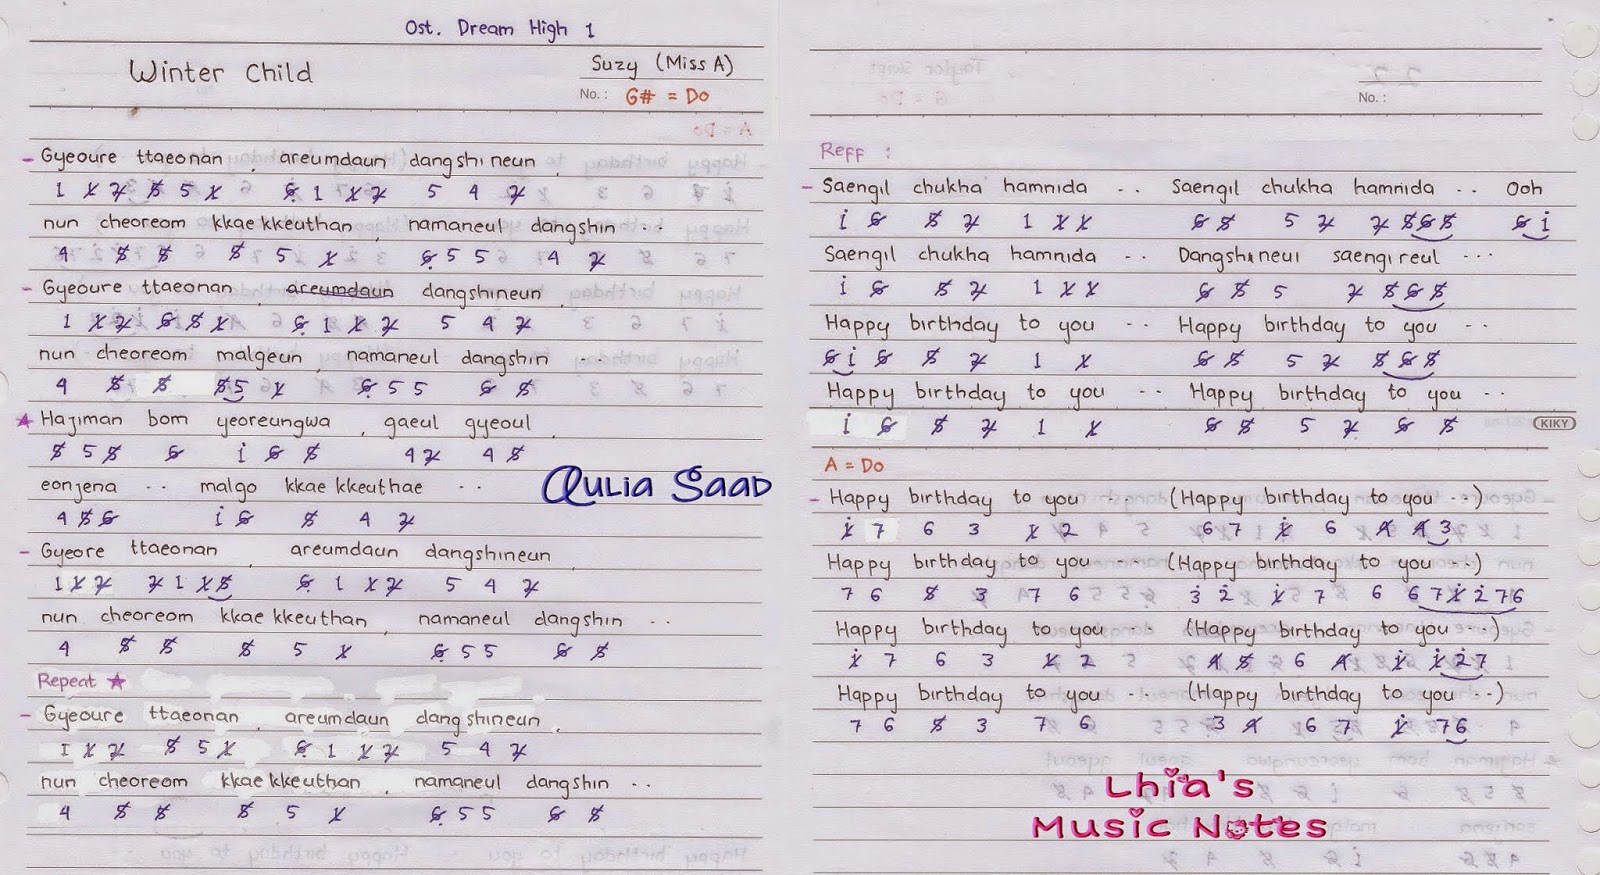 Ost. Dream High 1
Winter Child
Suzy (Miss A)
No.: G# = Do
- Gyeoure ttaeonan, areumdaun dangshineun,
1 1̸ 2̸ 5̸ 5 1̸ 6̸̣ 1 1̸ 2̸ 5 4 2̸
nun cheoreom kkaekkeuthan, namaneul dangshin ...
4 5̸ 5̸ 5̸ 5 1̸ 6̸̣ 5 5 4 2̸
- Gyeoure ttaeonan, areumdaun dangshineun,
1 1̸ 2̸ 6̸ 5̸ 1̸ 6̸̣ 1 1̸ 2̸ 5 4 2̸
nun cheoreom malgeun, namaneul dangshin ...
4 5̸ 5̸ 5̸ 5 1̸ 6̸̣ 5 5 6̸ 5̸
★ Hajiman bom yeoreungwa, gaeul gyeoul,
5̸ 5 5̸ 6̸ 1̇ 6̸ 5̸ 4 2̸ 4 5̸
eonjena .. malgo kkaekkeuthae ..
4 5̸ 6̸ 1̇ 6̸ 5̸ 4 2̸
Aulia Saad
- Gyeore ttaeonan, areumdaun dangshineun,
1 1̸ 2̸ 2̸ 1 1̸ 5̸ 6̸̣ 1 1̸ 2̸ 5 4 2̸
nun cheoreom kkaekkeuthan, namaneul dangshin ..
4 5̸ 5̸ 5̸ 5 1̸ 6̸̣ 5 5 6̸ 5̸
Repeat ★
- Gyeoure ttaeonan, areumdaun dangshineun,
1 1̸ 2̸ 5̸ 5 1̸ 6̸̣ 1 1̸ 2̸ 5 4 2̸
nun cheoreom kkaekkeuthan, namaneul dangshin ..
4 5̸ 5̸ 5̸ 5 1̸ 6̸̣ 5 5 6̸ 5̸
No.:
Reff :
- Saengil chukha hamnida .. Saengil chukha hamnida .. Ooh
1̇ 6̸ 5̸ 2̸ 1 1̸ 1̸ 6̸ 5̸ 5 2̸ 2̸ 5̸ 6̸ 5̸ 6̸ 1̇
Saengil chukha hamnida .. Dangshineui saengireul ...
1̇ 6̸ 5̸ 2̸ 1 1̸ 1̸ 6̸ 5̸ 5 2̸ 5̸ 6̸ 5̸
Happy birthday to you .. Happy birthday to you ..
6̸ 1̇ 6̸ 5̸ 2̸ 1 1̸ 6̸ 5̸ 5 2̸ 5̸ 6̸ 5̸
Happy birthday to you .. Happy birthday to you ..
1̇ 6̸ 5̸ 2̸ 1 1̸ 6̸ 5̸ 5 2̸ 6̸ 5̸
KIKY
A = Do
- Happy birthday to you .. (Happy birthday to you ...)
1̸̇ 7 6 3 1̸ 2 6 7 1̸̇ 6 4̸ 4̸ 3
Happy birthday to you ... (Happy birthday to you ...)
7 6 5̸ 3 7 6 3̇ 2̇ 1̸̇ 7 6 6 7 1̸̇ 2̇ 7 6
Happy birthday to you (Happy birthday to you ...)
1̸̇ 7 6 3 1̸ 2 4̸ 5̸ 6 4̸ 1̸̇ 1̸̇ 2̇ 7
Happy birthday to you ... (Happy birthday to you ..)
7 6 5̸ 3 7 6 3 4̸ 6 7 1̸̇ 7 6
Lhia's
Music Notes